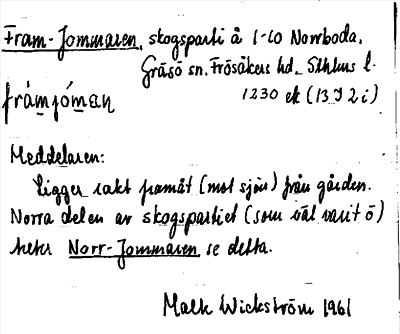 Fram-Jommaren, skogsparti å 1-10 Norrboda,
Gräsö sn. Frösåkers hd. Sthlms l.
1230 ek (13 I 2 i)
frámjóman
Meddelaren:
Ligger rakt framåt (mot sjön) från gården.
Norra delen av skogspartiet (som väl varit ö)
heter Norr-Jommaren se detta.
Maek Wickström 1961